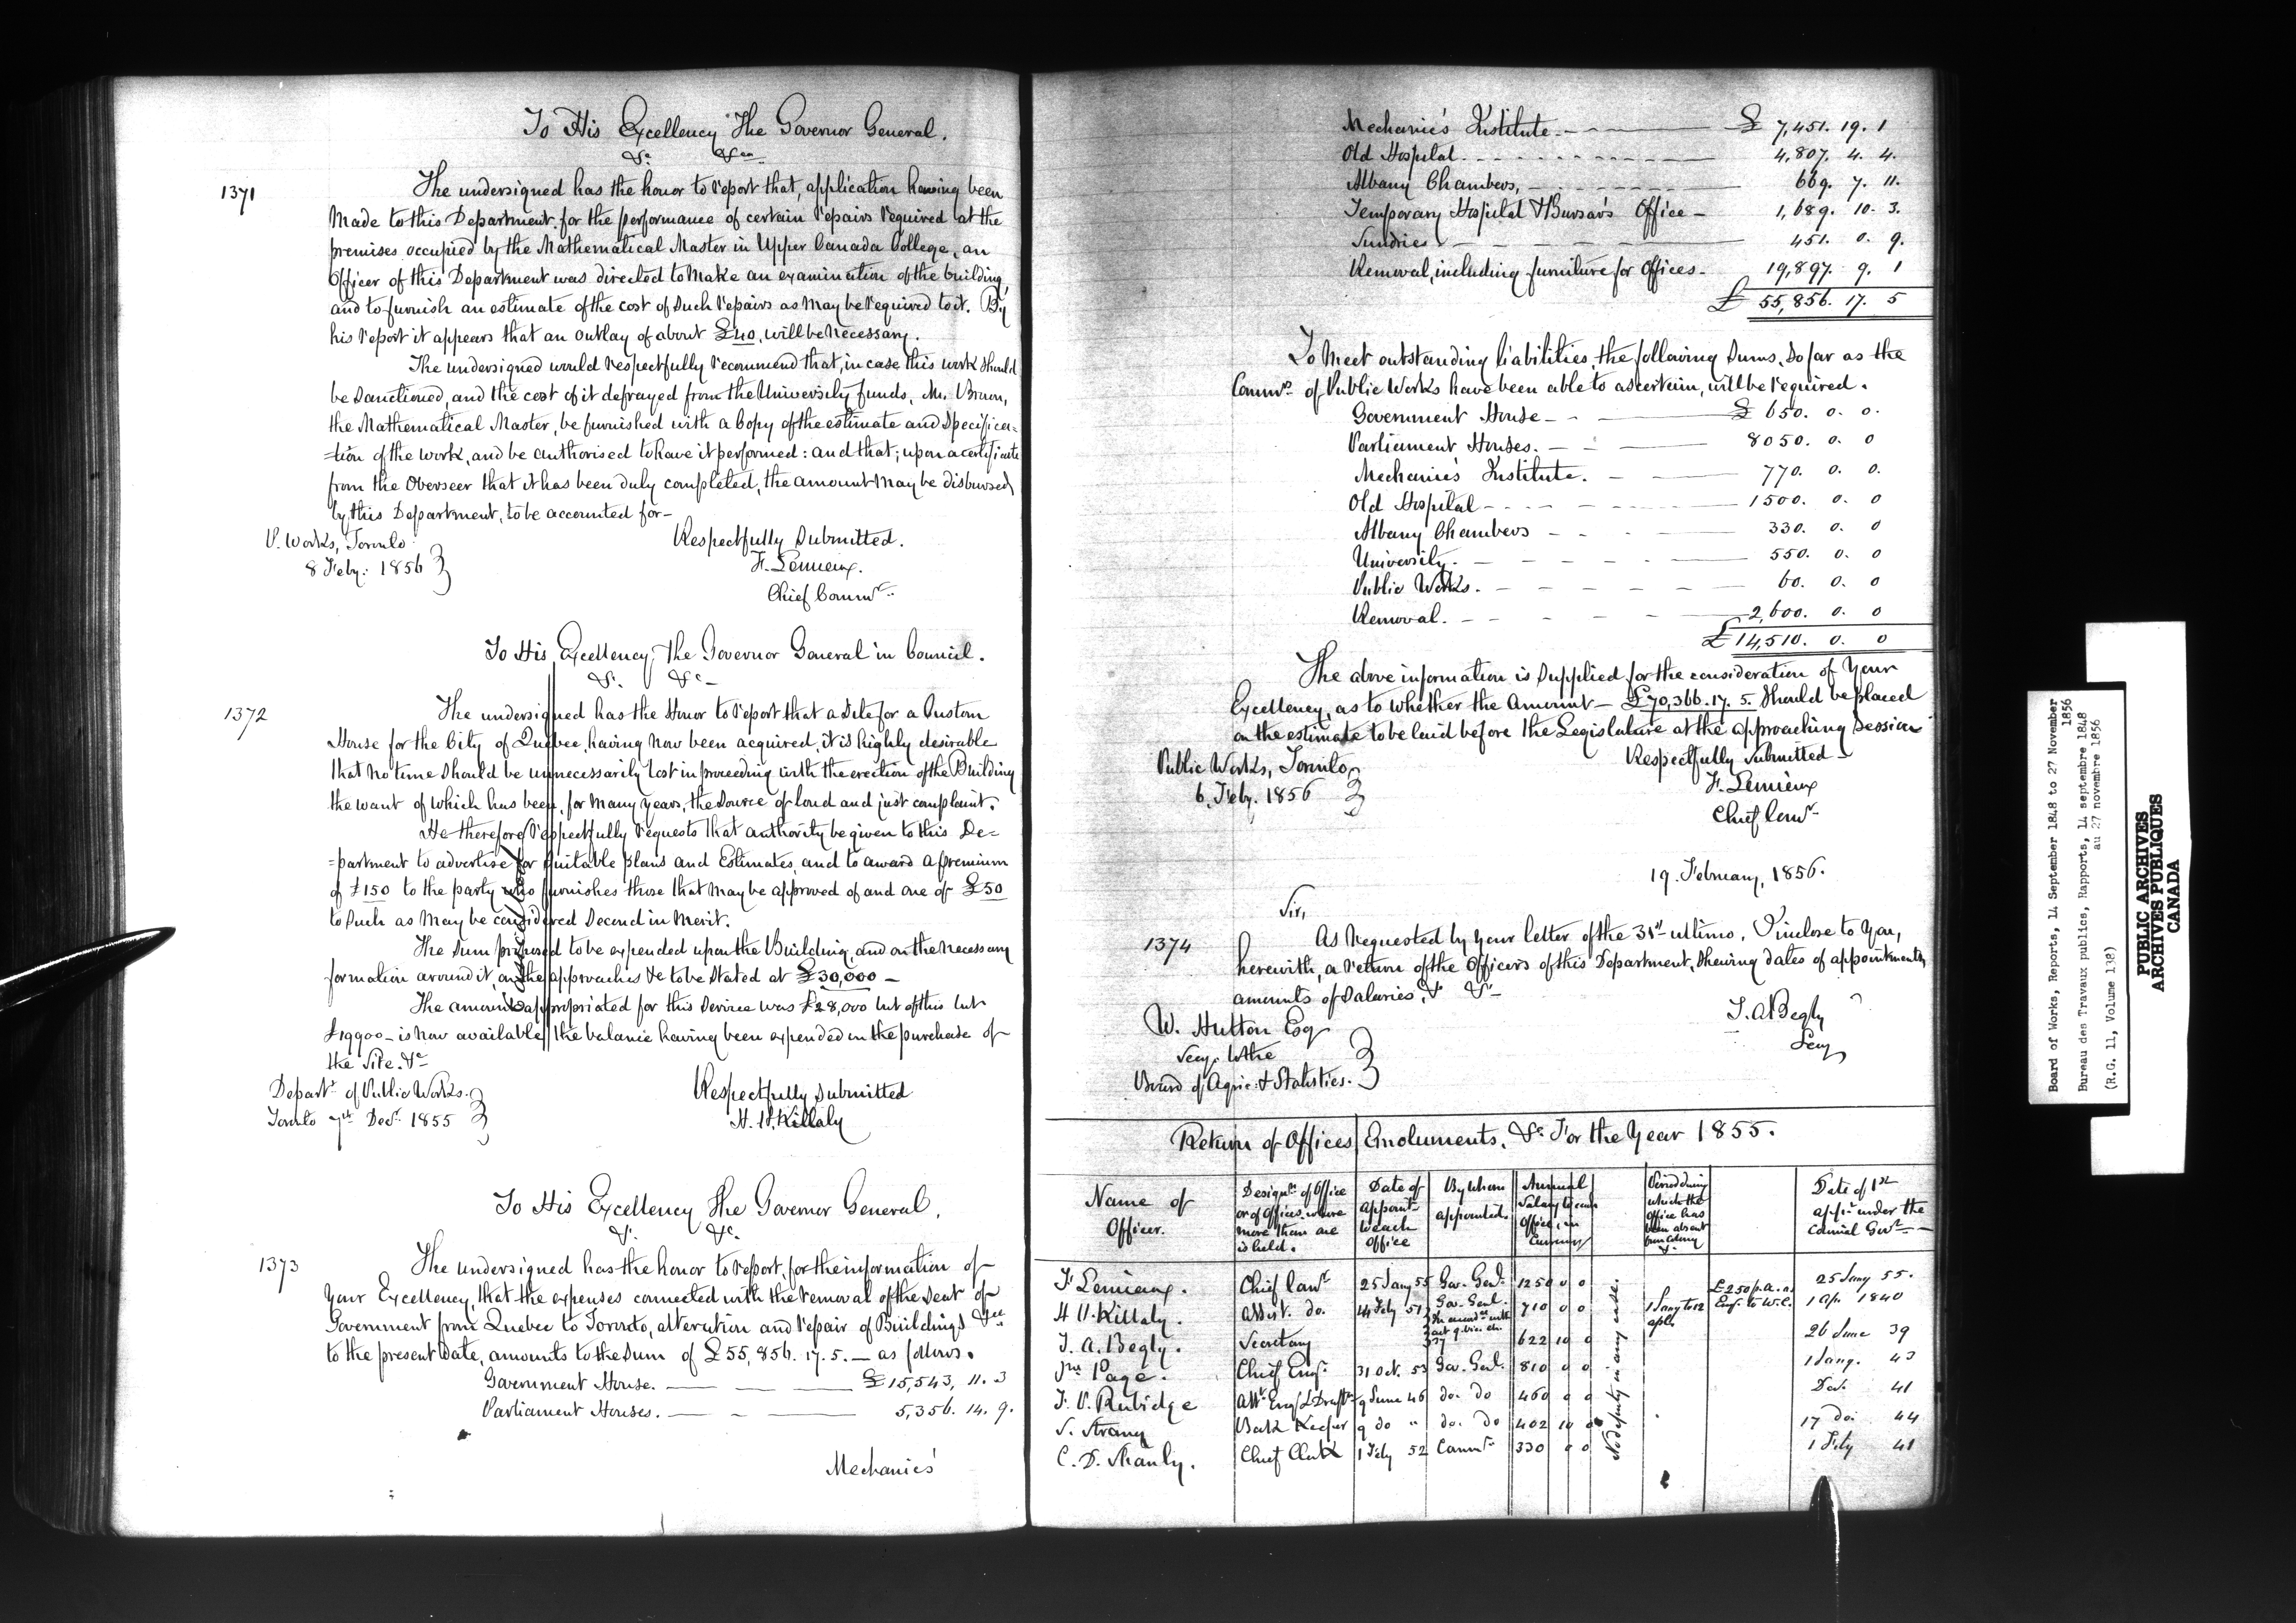 To His Excellency The Governor General.
&c. &ca
1371
The undersigned has the honor to report that, application having been
made to this Department for the performance of certain repairs required at the
premises occupied by the Mathematical Master in Upper Canada College, an
Officer of this Department was directed to make an examination of the building,
and to furnish an estimate of the cost of such repairs as may be required to it. By
his report it appears that an outlay of about £40, will be necessary.
The undersigned would respectfully recommend that, in case this work should
be sanctioned, and the cost of it defrayed from the University funds, Mr. Brown,
the Mathematical Master, be furnished with a Copy of the estimate and Specifica=
=tion of the work, and be authorised to have it performed: and that; upon a certificate
from the Overseer that it has been duly completed, the amount may be disbursed
by this Department, to be accounted for–
P. Works, Toronto
8 Feby: 1856
Respectfully Submitted.
F. Lemieux.
Chief Commr.
To His Excellency, the Governor General in Council.
&c. &c–
1372
The undersigned has the Honor to report that a Site for a Custom
House for the City of Quebec, having now been acquired, it is highly desirable
that no time should be unnecessarily lost in proceeding with the erection of the Building
the want of which has been, for many years, the source of loud and just complaint.
He therefore respectfully requests that authority be given to this De=
=partment to advertise for suitable plans and Estimates, and to award a premium
of £150 to the party who furnishes those that may be approved of and one of £50
to such as may be considered second in merit.
The sum proposed to be expended upon the Building, and on the necessary
formation around it, on the approaches &c to be stated at £30,000 –
The amount appropriated for this service was £28,000 but of this but
£19900 – is now available, the balance having been expended in the purchase of
the Site. &c
Departt. of Public Works.
Toronto 7th Decr. 1855
Respectfully Submitted
H. H. Killaly
To His Excellency The Governor General,
&c. &c.
1373
The undersigned has the honor to report, for the information of
Your Excellency, that the expenses connected with the removal of the Seat of
Government from Quebec to Toronto, alteration and repair of Buildings &ca
to the present date, amounts to the sum of £55,856. 17. 5. – as follows.
Government House. £15,543, 11. 3
Parliament Houses. 5,356. 14. 9.
Mechanics'
Mechanic's Institute. £ 7,451. 19. 1
Old Hospital. 4,807. 4. 4.
Albany Chambers, 669. 7. 11.
Temporary Hospital & Bursar's Office – 1,689. 10. 3.
Sundries 451. 0. 9.
Removal, including furniture for Offices. 19,897. 9. 1
£ 55,856. 17. 5
To meet outstanding liabilities, the following sums, so far as the
Commrs. of Public Works have been able to ascertain, will be required.
Government House – £ 650. 0. 0.
Parliament Houses. 8050. 0. 0
Mechanic's Institute. 770. 0. 0.
Old Hospital 1500. 0. 0
Albany Chambers 330. 0. 0
University. 550. 0. 0
Public Works. 60. 0. 0
Removal. 2,600. 0. 0
£14,510. 0. 0
The above information is supplied for the consideration of Your
Excellency, as to whether the amount – £70,366. 17. 5. should be placed
on the estimate to be laid before the Legislature at the approaching session
Public Works, Toronto
6, Feby. 1856
Respectfully Submitted –
F. Lemieux
Chief Comr.
19. February, 1856.
Sir,
1374
As requested by your letter of the 31st ultimo, I inclose to you,
herewith, a return of the Officers of this Department, shewing dates of appointments,
amounts of salaries, & &c–
T. A Begly
Secy
W. Hutton Esq
Secy. to the
Board of Agric: & Statistics.
Return of Offices, Emoluments, &c. For the Year 1855.
Name of Officer.
Designn. of Office or of offices, where more than one is held.
Date of appoint- to each Office
By whom appointed.
Annual Salary to each Office, in Currency
Period during which the office has been absent from colony &.
Date of 1st appt. under the Colonial Govt.
F Lemieux. Chief Comr 25 Jany 55 Gov. Genl. 1250 0 0 25 Jany 55.
H H. Killaly. Assist. do. 14 Feby 51 Gov. Genl. 710 0 0 1 Jany to 12 apl. £250 p. a. as Engr. to W. C. 1 Ap. 1840
T. A. Begly. Secretary 622 10 0 26 June 39
Jno Page. Chief Engr. 31 Oct. 53 Gov. Genl. 810 0 0 1 Jany. 43
F. P. Rubidge Asst. Engr & Draftn 9 June 46 do. do 460 0 0 Oct. 41
Book Keeper 9 do " do. do 402 10 0 17 do. 44
C. D. Shanly. Chief Clerk 1 Feby 52 Commrs 330 0 0 1 Feby 41
No deputy in any case.
Board of Works, Reports, 14 September 1848 to 27 November 1856
Bureau des Travaux publics, Rapports, 14 septembre 1848 au 27 novembre 1856
(R.G. 11, Volume 138)
PUBLIC ARCHIVES
ARCHIVES PUBLIQUES
CANADA